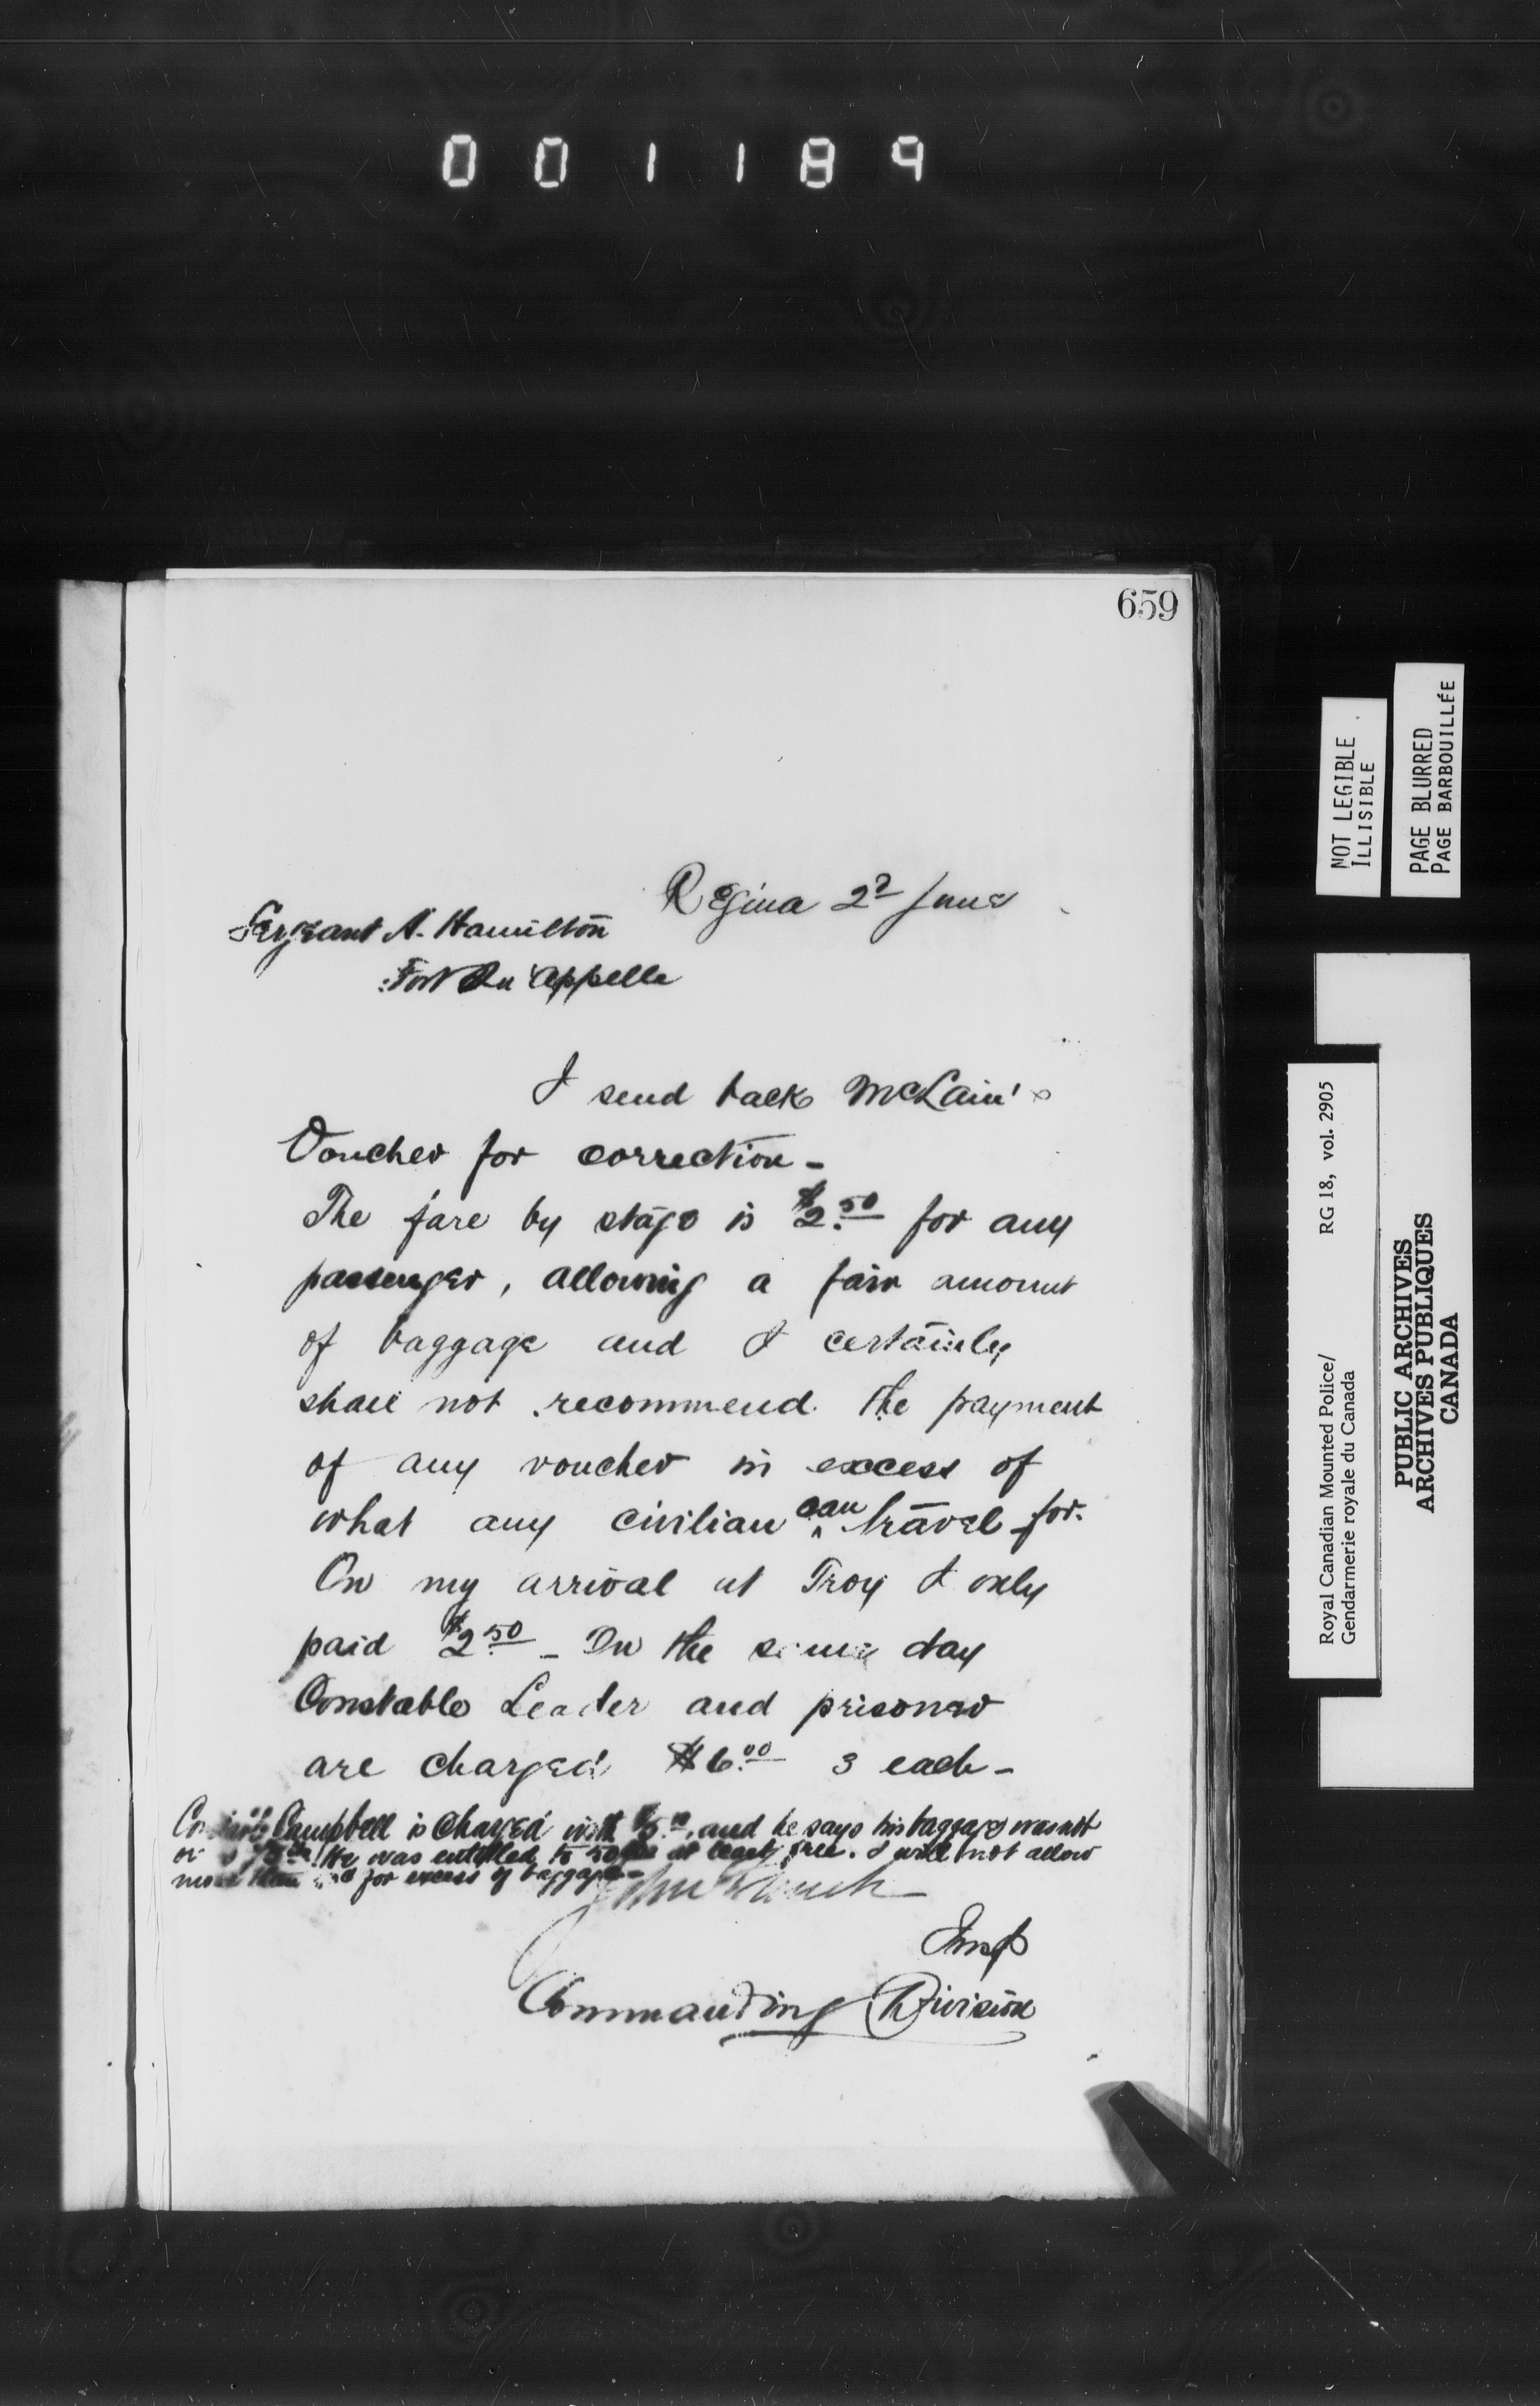 001189
659
Regina 22 June
Sergeant A. Hamilton
Fort Qu'Appelle
I send back McLain's
Voucher for correction -
The fare by stage is $2.50 for any
passenger, allowing a fair amount
of baggage and I certainly
shall not recommend the payment
of any voucher in excess of
what any civilian can travel for.
On my arrival at Troy I only
paid $2.50 - On the same day
Constable Leader and prisoner
are charged $6.00 3 each -
Campbell is charged with $5.00, and he says his baggage was not
He was entitled to 50 at least, free. I will not allow
more than for excess of baggage -
John
Insp
Commanding Division
NOT LEGIBLE
ILLISIBLE
PAGE BLURRED
PAGE BARBOUILLÉE
Royal Canadian Mounted Police/ RG 18, vol. 2905
Gendarmerie royale du Canada
PUBLIC ARCHIVES
ARCHIVES PUBLIQUES
CANADA